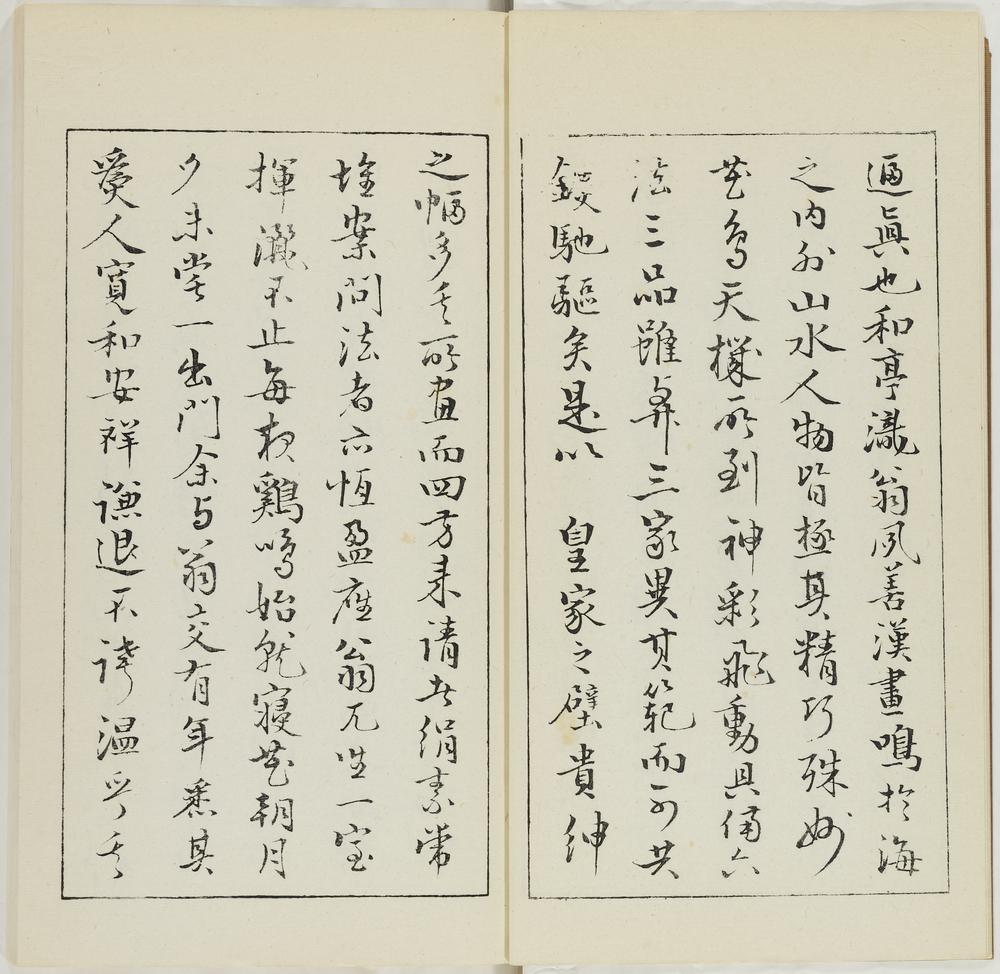 逼眞也和亭瀧翁夙善漢畫鳴於海
之内外山水人物皆極其精巧殊妙
花鳥天機所到神彩飛動具備六
法三品雖弁三家異其範而可共
鋑馳驅矣是以　皇家之壁貴紳
之幅多其所畫而四方来請者絹素常
堆案問法者亦恆盈座翁兀坐一室
揮灑不止每夜鷄鳴始就寝花朝月
夕未嘗一出門余与翁交有年悉其
為人寬和安祥謙退不誇温乎其